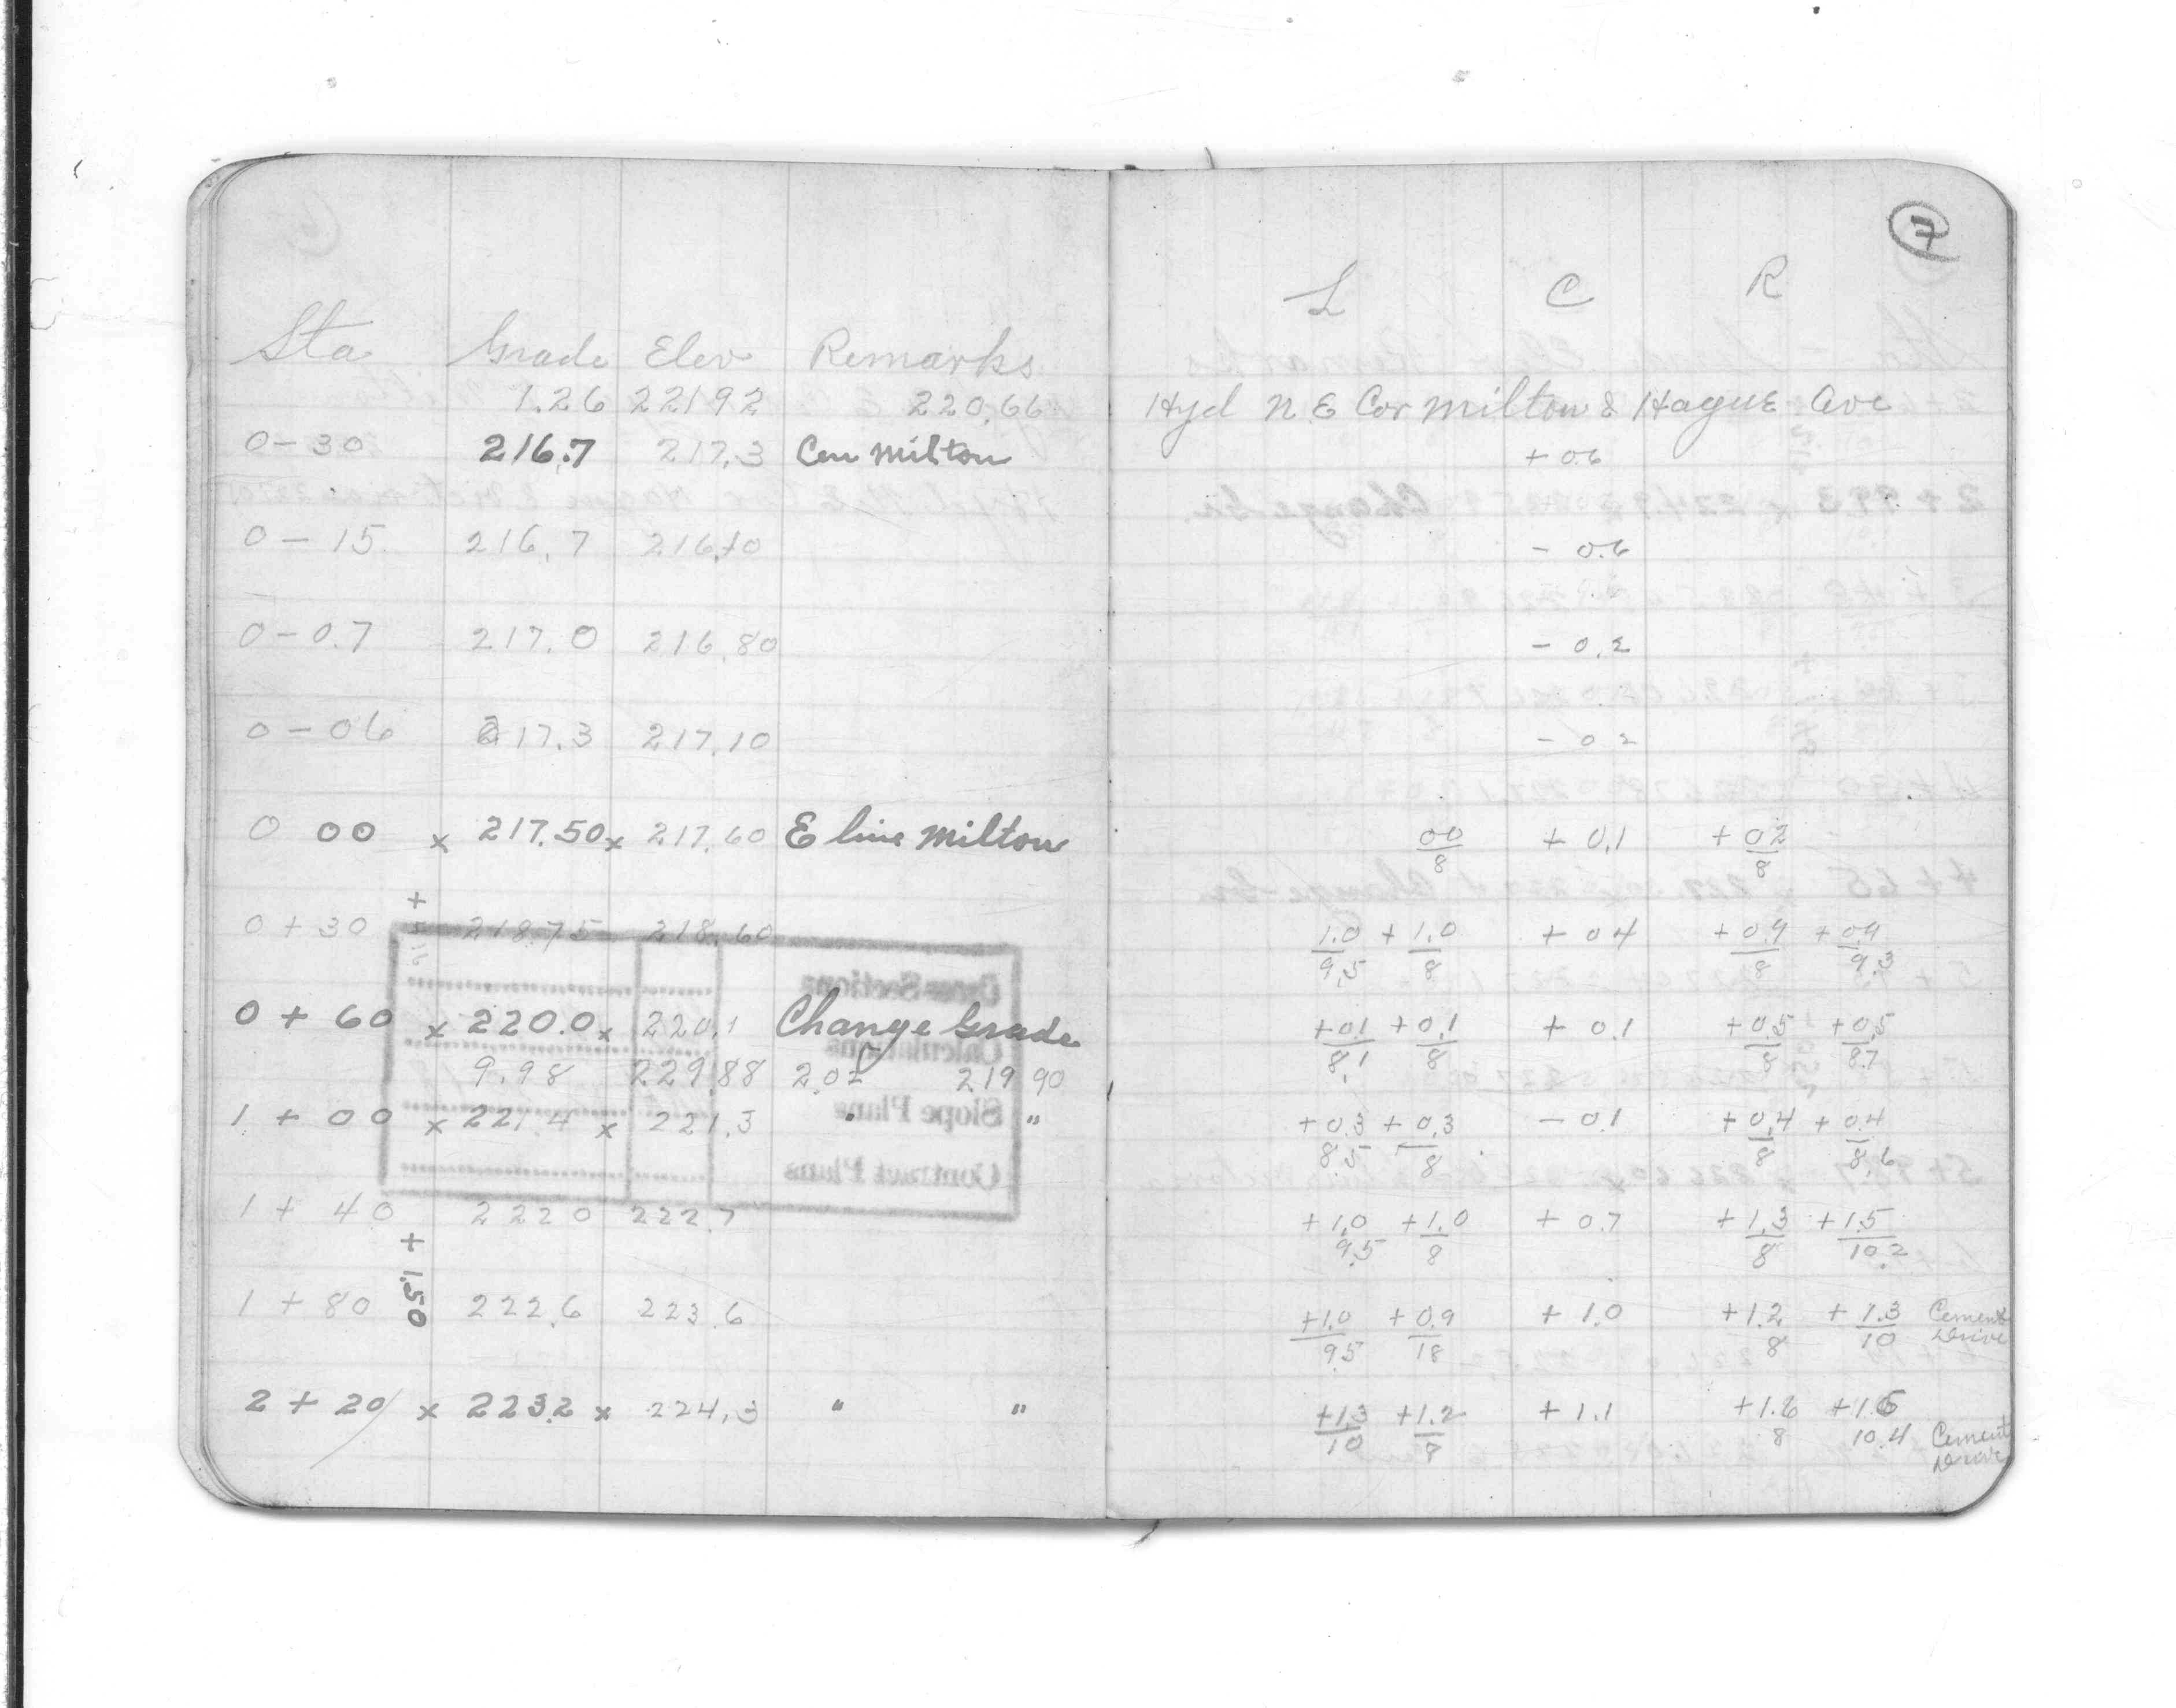 7
L C R
Sta Grade Elev Remarks
1.26 221 92 220.66 Hyd N.E Cor Milton & Hague Ave
0 - 30 216.7 217.3 Cen Milton + 0.6
0 - 15 216.7 216.10 - 0.6
0 - 0.7 217.0 216.80 - 0.2
0 - 06 217.3 217.10 - 0 2
0 00 x 217.50 x 217.60 E line Milton 00/8 + 0.1 + 02/8
0 + 30 218.75 218.60 1.0/9.5 + 1.0/8 + 0 4 + 0.9/8 + 0.9/9.3
0 + 60 x 220.0 x 220.1 Change Grade +0.1/8.1 +0.1/8 + 0.1 +0.5/8 +0.5/8.7
9.98 229.88 2.02 219 90
1 + 00 x 221.4 x 221.3 " " +0.3/8.5 + 0.3/8 - 0.1 +0.4/8 + 0.4/8.6
1 + 40 222 0 222.7 +1.0/9.5 +1.0/8 + 0.7 +1.3/8 +1.5/10.2
+ 1.50
1 + 80 222.6 223.6 +1.0/9.5 + 0.9/18 + 1.0 +1.2/8 + 1.3/10 Cement Drive
2 + 20 x 223.2 x 224.3 " " +1.3/10 +1.2/8 + 1.1 +1.6/8 +1.6/10.4 Cement Drive
Cross-Sections
Calculations
Slope Plans
Contract Plans